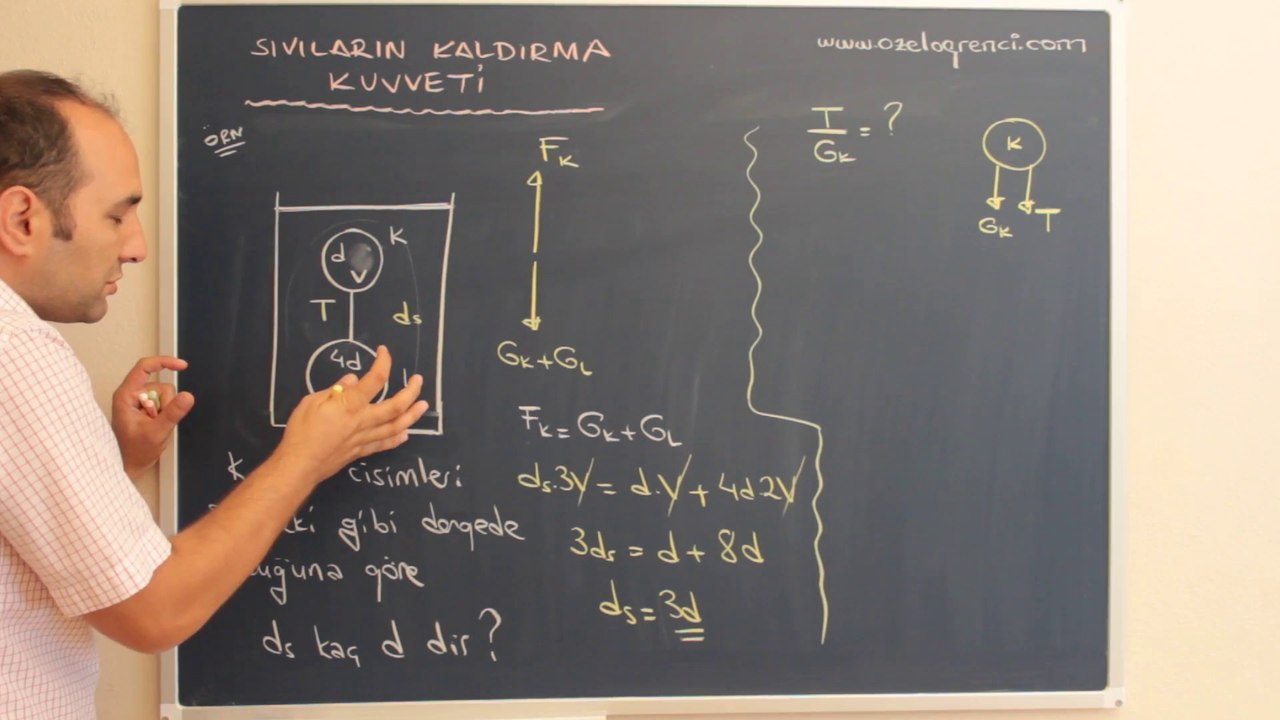 SIVILARIN KALDIRMA
KUVVETİ
www.ozelogrenci.com
ÖRN
d
V
K
T
ds
4d
K cisimleri
gibi dengede
göre
ds kaç d dir?
FK
GK+GL
FK = GK+GL
ds.3V = d.V + 4d.2V
3ds = d + 8d
ds = 3d
T/GK = ?
K
GK T